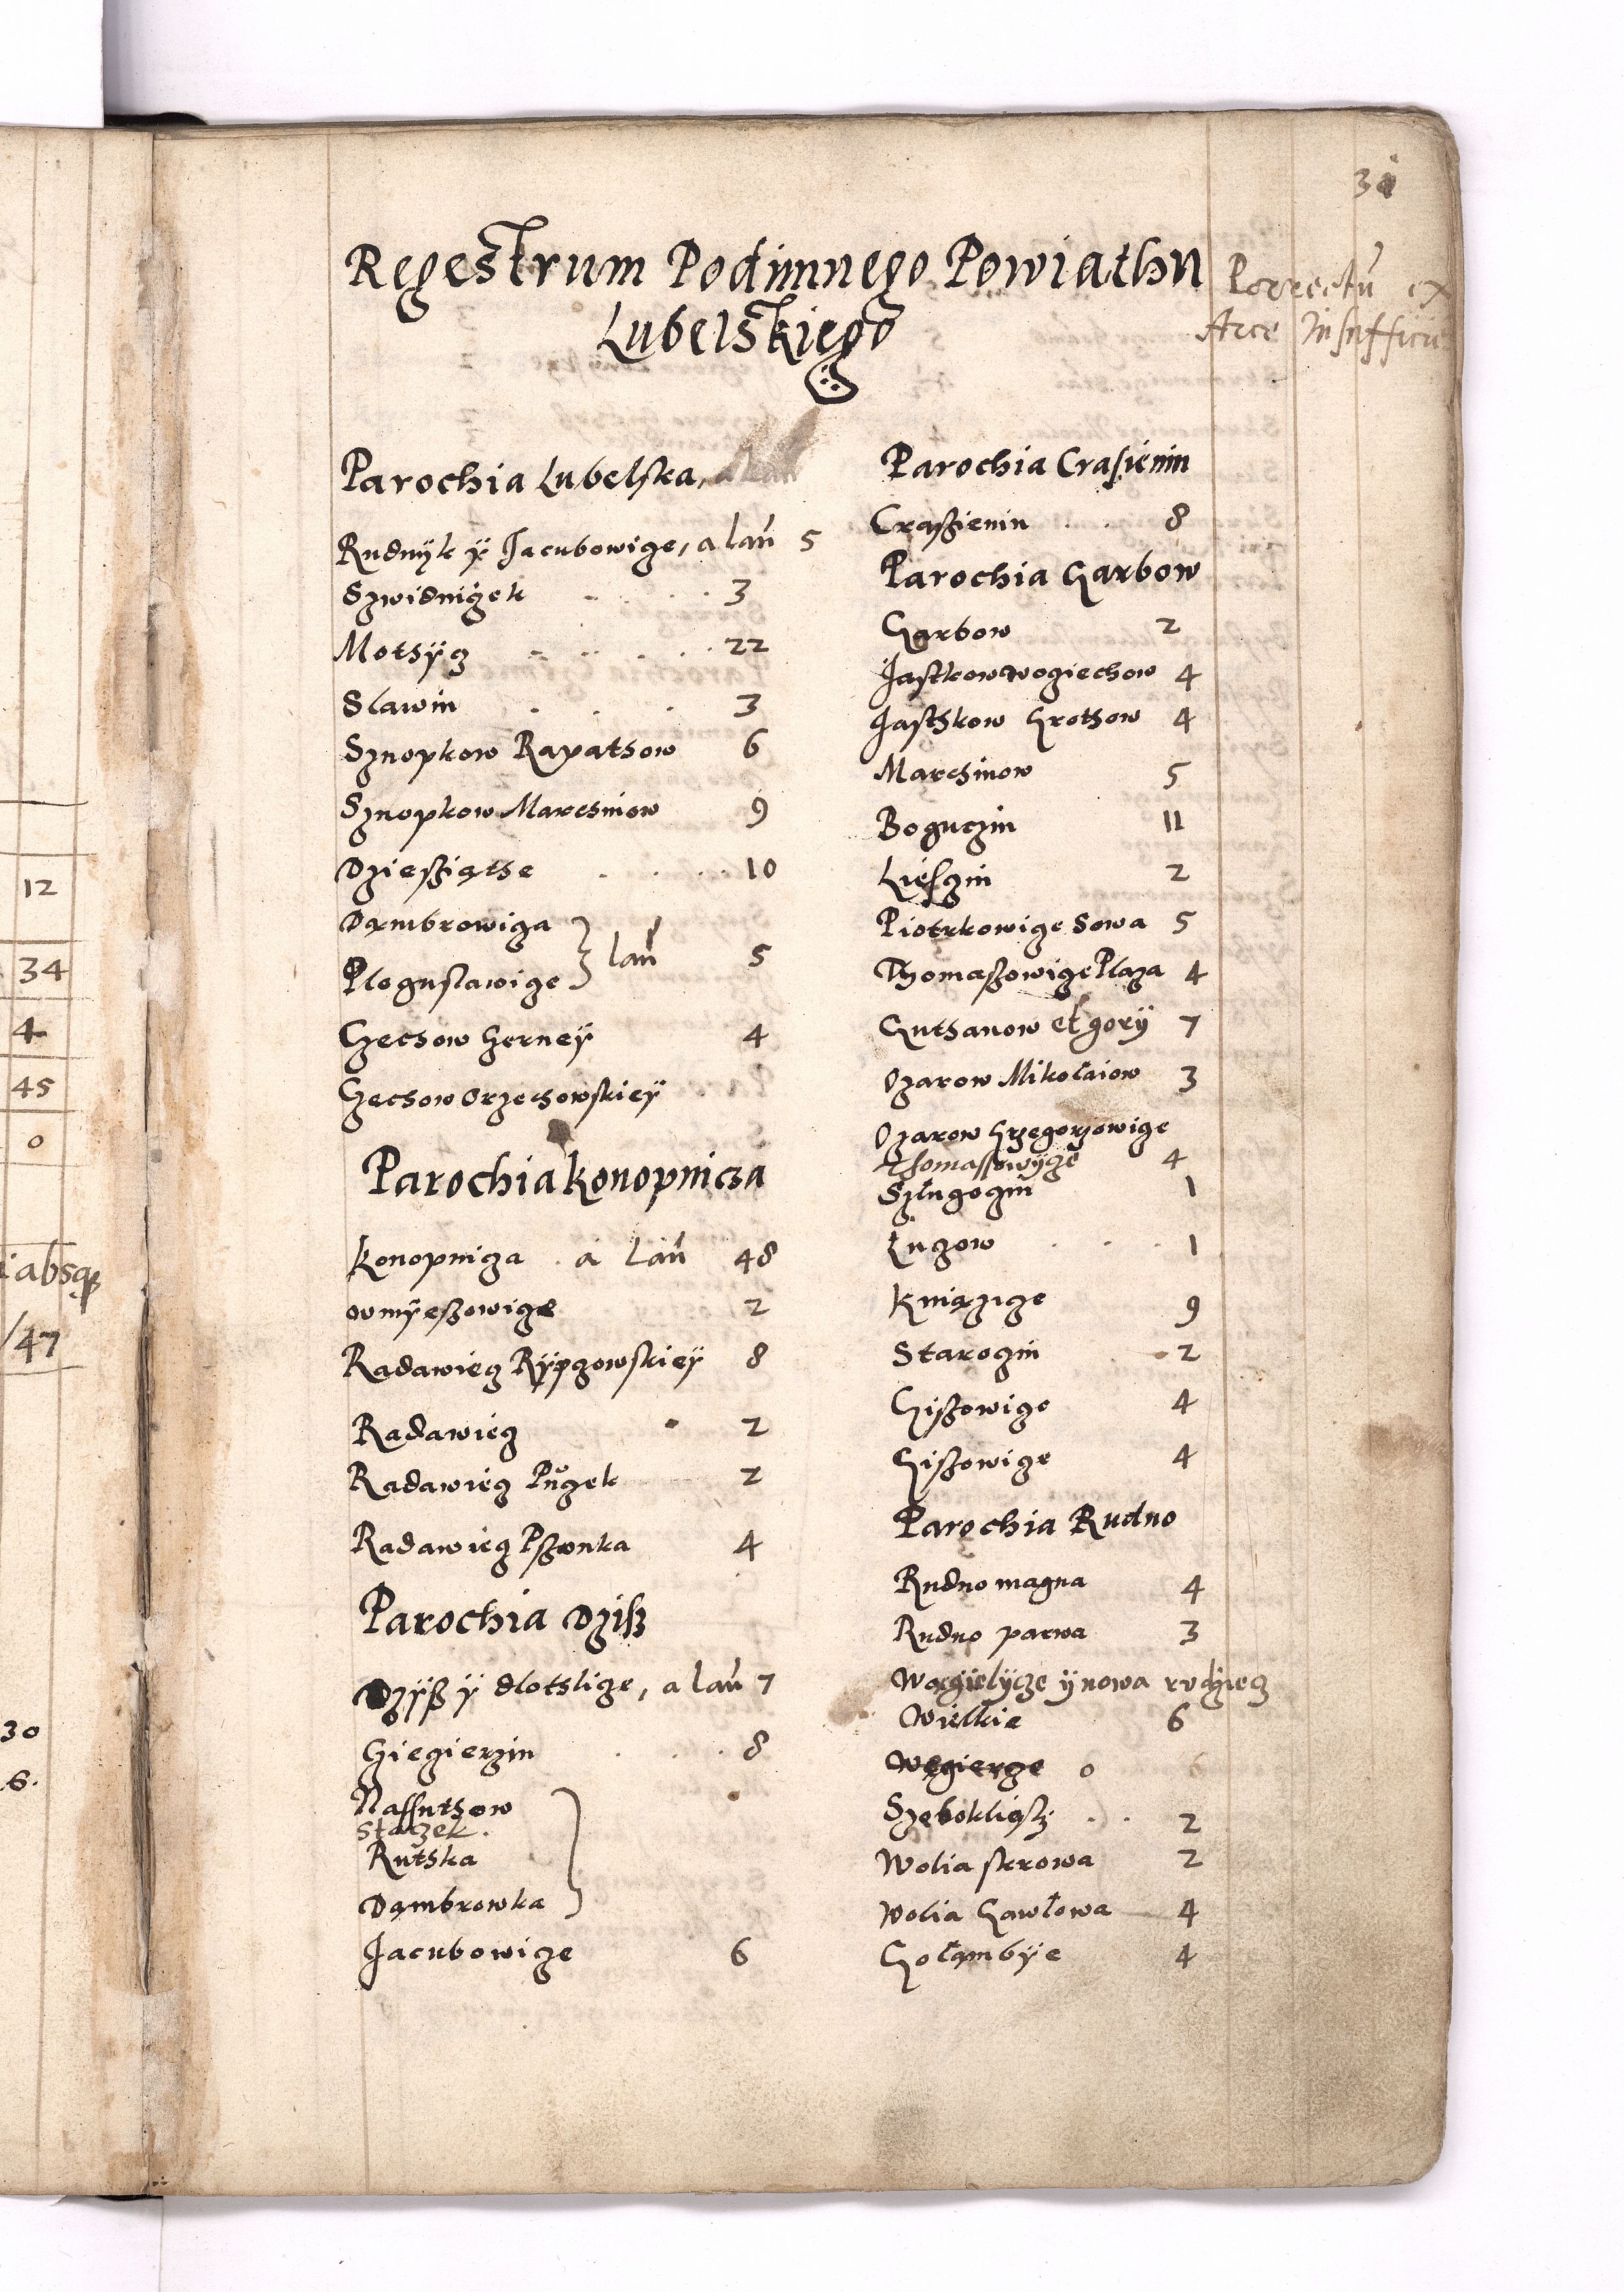 31
Regestrum Podimnego Powiathu
Lubelskiego
Porrectu ex
Arce
Parochia Lubelska,
Rudnyk ÿ Jacubowice, a lań 5
Szwidnigek 3
Motsÿcz 22
Slawin 3
Sznopkow Rapatsow 6
Sznopkow Marcsinow 9
Dziesziątse 10
Dąmbrowiga
lań 5
Ploguslawice
Czecsow Gorneÿ 4
Czecsow Orzechowskieÿ
Parochia Konopnicza
Konopnicza a Lań 48
owmÿeszowice 2
Radawiecz Rÿpczowskieÿ 8
Radawiecz 2
Radawiecz Pŭgek 2
Radawiecz Pszonka 4
Parochia Dzisz
Dzÿsz ÿ dlotslice, a lań 7
Giegierzin 8
Nassutsow
Staczek.
Rŭtska
Dąmbrowka
Jacubowicze 6
Parochia Crasienin
Craszienin 8
Parochia Garbow
Garbow 2
Jastkow wogiechow 4
Jastskow Grotsow 4
Marcsinow 5
Boguczin 11
Liesczin 2
Piotrkowice Sowa 5
Thomaszowice Plaza 4
Gutsanow et gorÿ 7
Ozarow Mikołaiow 3
Ozarow Grzegorzowice
Thomassowÿcze 4
Szlugogin 1
Lugow 1
Kniązicze 9
Starogin 2
Giszowice 4
Giszowice 4
Parochia Rudno
Rudno magna 4
Rudno parwa 3
Wągielÿcze ÿ nowa rodziecz
Wielkie 6
Węgierce 0 6
Szębokliąsz 2
Wolia skrowa 2
Wolia Gawłowa 4
Gołąmbÿe 4
12
34
4
45
0
iabsqz
/47
30
.6.